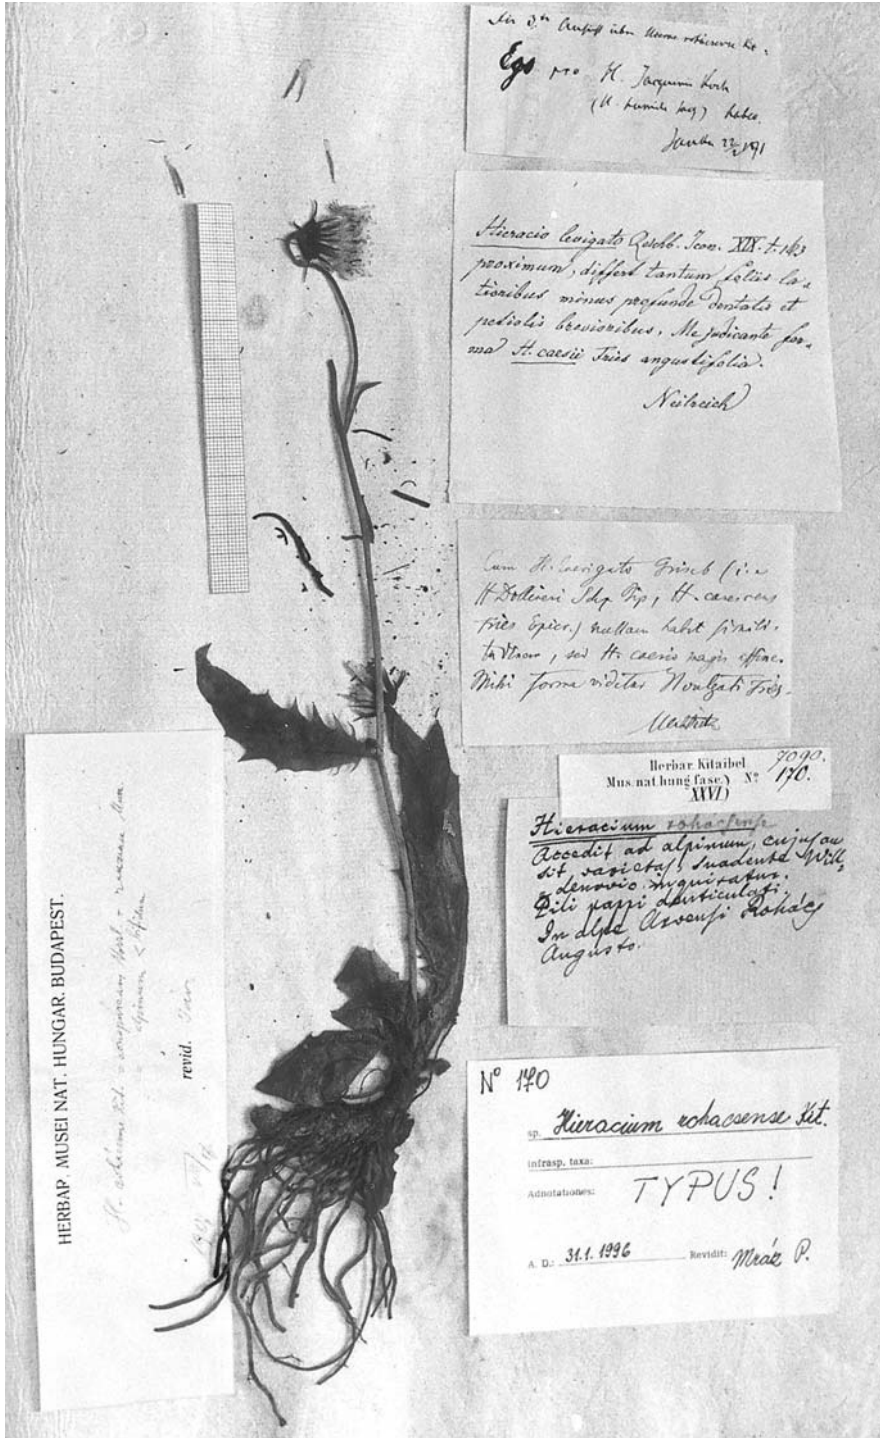 Ego pro H. Jacquini
(H. humile Jacq) habeo.
Janka
Hieracio levigato Rchb. Icon. XIX. t. 163
proximum, differt tantum foliis la-
tioribus minus profunde dentatis et
petiolis brevioribus. Me judicante for-
ma H. caesii Fries angustifolia.
Neilreich
Cum H. laevigato Griseb (i. e
H Dollineri Schp Bip, H. canescens
Fries Epicr.) nullam habet simili-
tudinem, sed H. caesio magis affine.
Mihi forma videtur H vulgati Fries.
Herbar. Kitaibel
7090.
Mus. nat. hung. fasc.)
XXVI)
Nº 170.
Hieracium rohacsense
Accedit ad alpinum, cujus an
sit varietas, suadente Will-
denovio inquiratur.
Pili pappi denticulati.
In alpe Arvensi Rohács
Augusto.
Nº 170
sp. Hieracium rohacsense Kit.
infrasp. taxa:
Adnotationes: TYPUS!
A. D.: 31.1.1996 Revidit: Mráz P.
HERBAP. MUSEI NAT. HUNGAR. BUDAPEST.
alpinum < bifidum
revid.